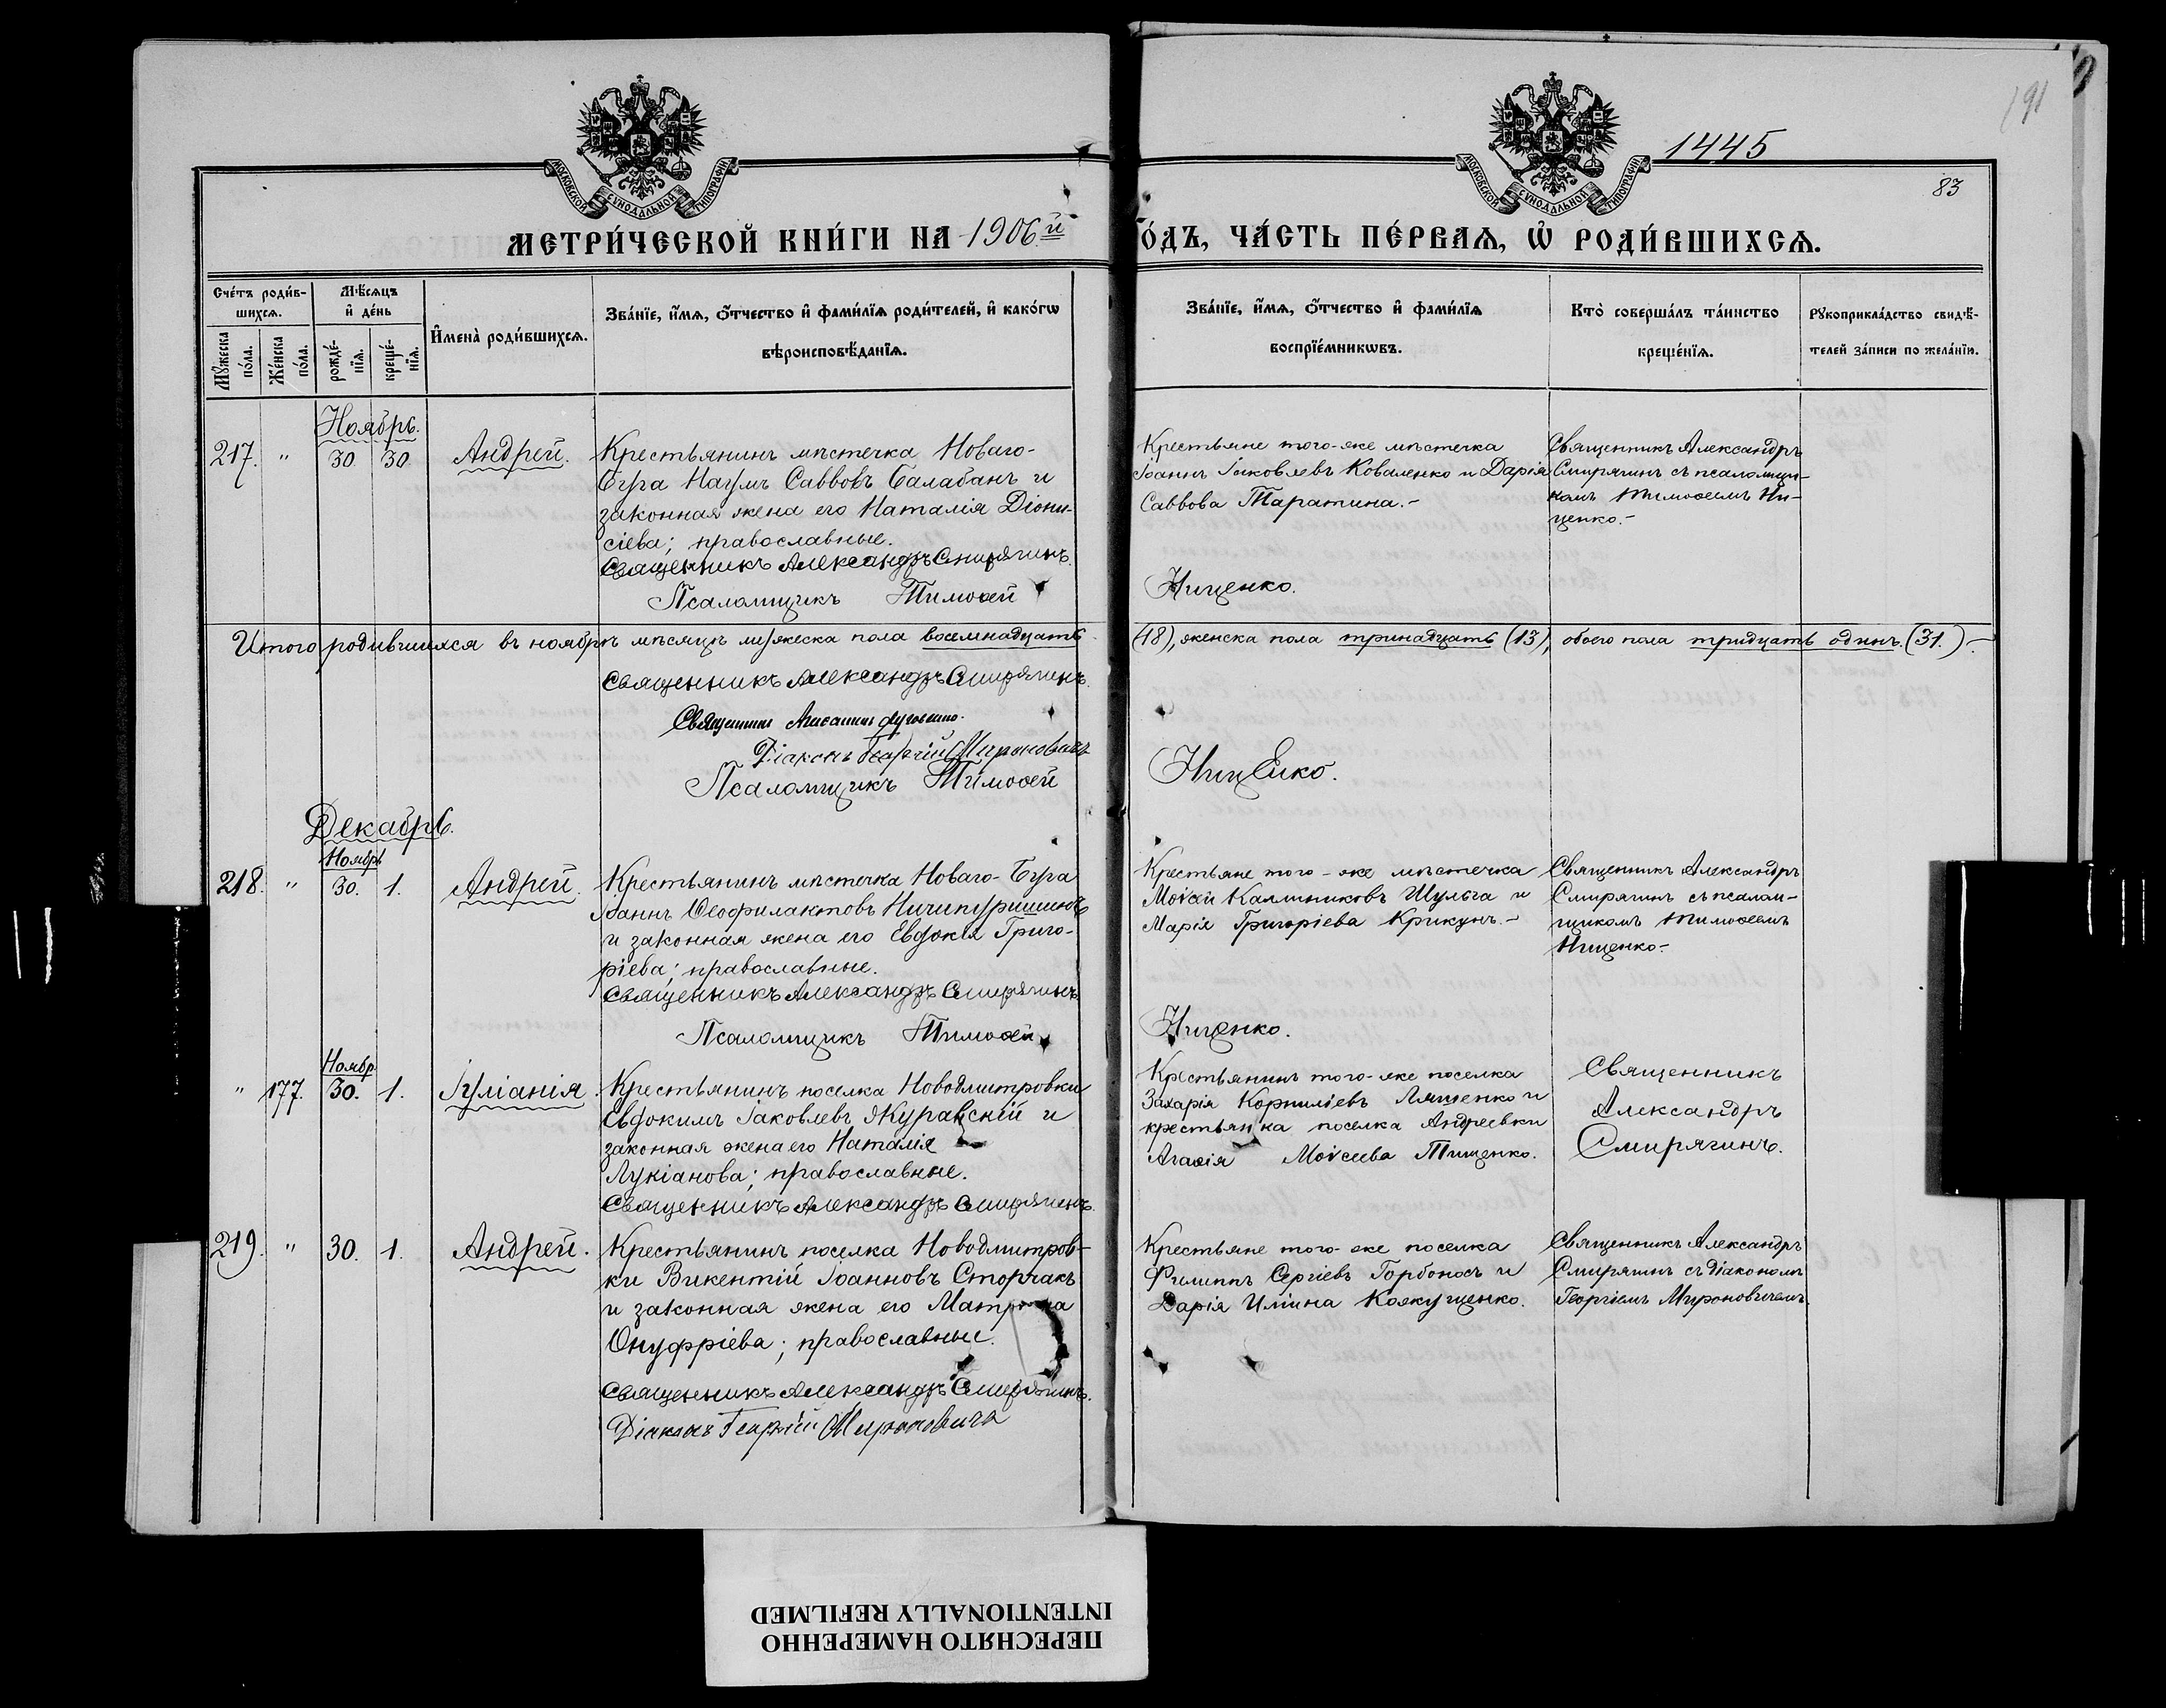 191
1445
83
МОСКОВСКОЙ СУНОДАЛЬНОЙ ТИПОГРАФІИ
МОСКОВСКОЙ СУНОДАЛЬНОЙ ТИПОГРАФІИ
МЕТРИ́ЧЕСКОЙ КНИ́ГИ НА 1906й
О́ДЪ, ЧА́СТЬ ПЕ́РВАѦ, Ѽ РОДИ́ВШИХСѦ.
Счéтъ роди́в-
шихсѧ.
Мꙋ́жеска по́ла.
Же́нска по́ла.
Мѣ́сѧцъ
и҆ де́нь
рожде́-
нїѧ.
креще́-
нїѧ.
И҆мена̀ роди́вшихсѧ.
Зва́нїе, и҆́мѧ, ѻ҆́тчество и҆ фами́лїѧ роди́телей, и҆ како́гѡ
вѣроисповѣ́данїѧ.
Зва́нїе, и҆́мѧ, ѻ҆́тчество и҆ фами́лїѧ
воспрїе́мникѡвъ.
Кто̀ соверша́лъ та́инство
креще́нїѧ.
Рꙋкоприкла́дство свидѣ́-
телей за́писи по жела́нїю.
Ноябрь.
217. " 30 30 Андрей.
Крестьянинъ мѣстечка Новаго-
Буга Наумъ Саввовъ Балабанъ и
законная жена его Наталія Діони-
сіева; православные.
Священникъ Александръ Смирягинъ.
Псаломщикъ Тимоѳей
Крестьяне того-же мѣстечка
Іоаннъ Іаковлевъ Коваленко и Дарія
Саввова Таратина.-
Ниценко.
Священникъ Александръ
Смирягинъ съ псаломщи-
комъ Тимоѳеемъ Ни-
ценко.-
Итого родившихся въ ноябрѣ мѣсяцѣ мужеска пола восемнадцать (18), женска пола тринадцать (13), обоего пола тридцать одинъ. (31.)-
Священникъ Александръ Смирягинъ.
Священникъ
Діаконъ Георгій Мироновичъ
Псаломщикъ Тимоѳей
Ниценко.
Декабрь.
Ноябрь
218. " 30. 1. Андрей.
Крестьянинъ мѣстечка Новаго-Буга
Іоаннъ Ѳеофилактовъ Ничипуришинъ
и законная жена его Евдокія Григо-
ріева; православные.
Священникъ Александръ Смирягинъ
Псаломщикъ Тимоѳей
Крестьяне того-же мѣстечка
Моѵсей Каллиниковъ Шульга и
Марія Григоріева Крикунъ.-
Ниценко.
Священникъ Александръ
Смирягинъ съ псалом-
щикомъ Тимоѳеемъ
Ниценко.-
Ноябр.
" 177. 30. 1. Іуліанія.
Крестьянинъ поселка Новодмитровки
Евдокимъ Іаковлевъ Журавскій и
законная жена его Наталія
Лукіанова; православные.
Священникъ Александръ Смирягинъ.
Крестьянинъ того-же поселка
Захарія Корниліевъ Ляшенко и
крестьянка поселка Андреевки
Агаѳія Моѵсеева Тищенко.
Священникъ
Александръ
Смирягинъ.
219. " 30. 1. Андрей.
Крестьянинъ поселка Новодмитров-
ки Викентій Іоанновъ Сторчакъ
и законная жена его Матрона
Онуфріева; православные.
Священникъ Александръ Смирягинъ.
Діаконъ Георгій Мироновичъ
Крестьяне того-же поселка
Филиппъ Сергіевъ Горбоносъ и
Дарія Иліина Кожущенко.
Священникъ Александръ
Смирягинъ съ діакономъ
Георгіемъ Мироновичемъ.
ПЕРЕСНЯТО НАМЕРЕННО
INTENTIONALLY REFILMED